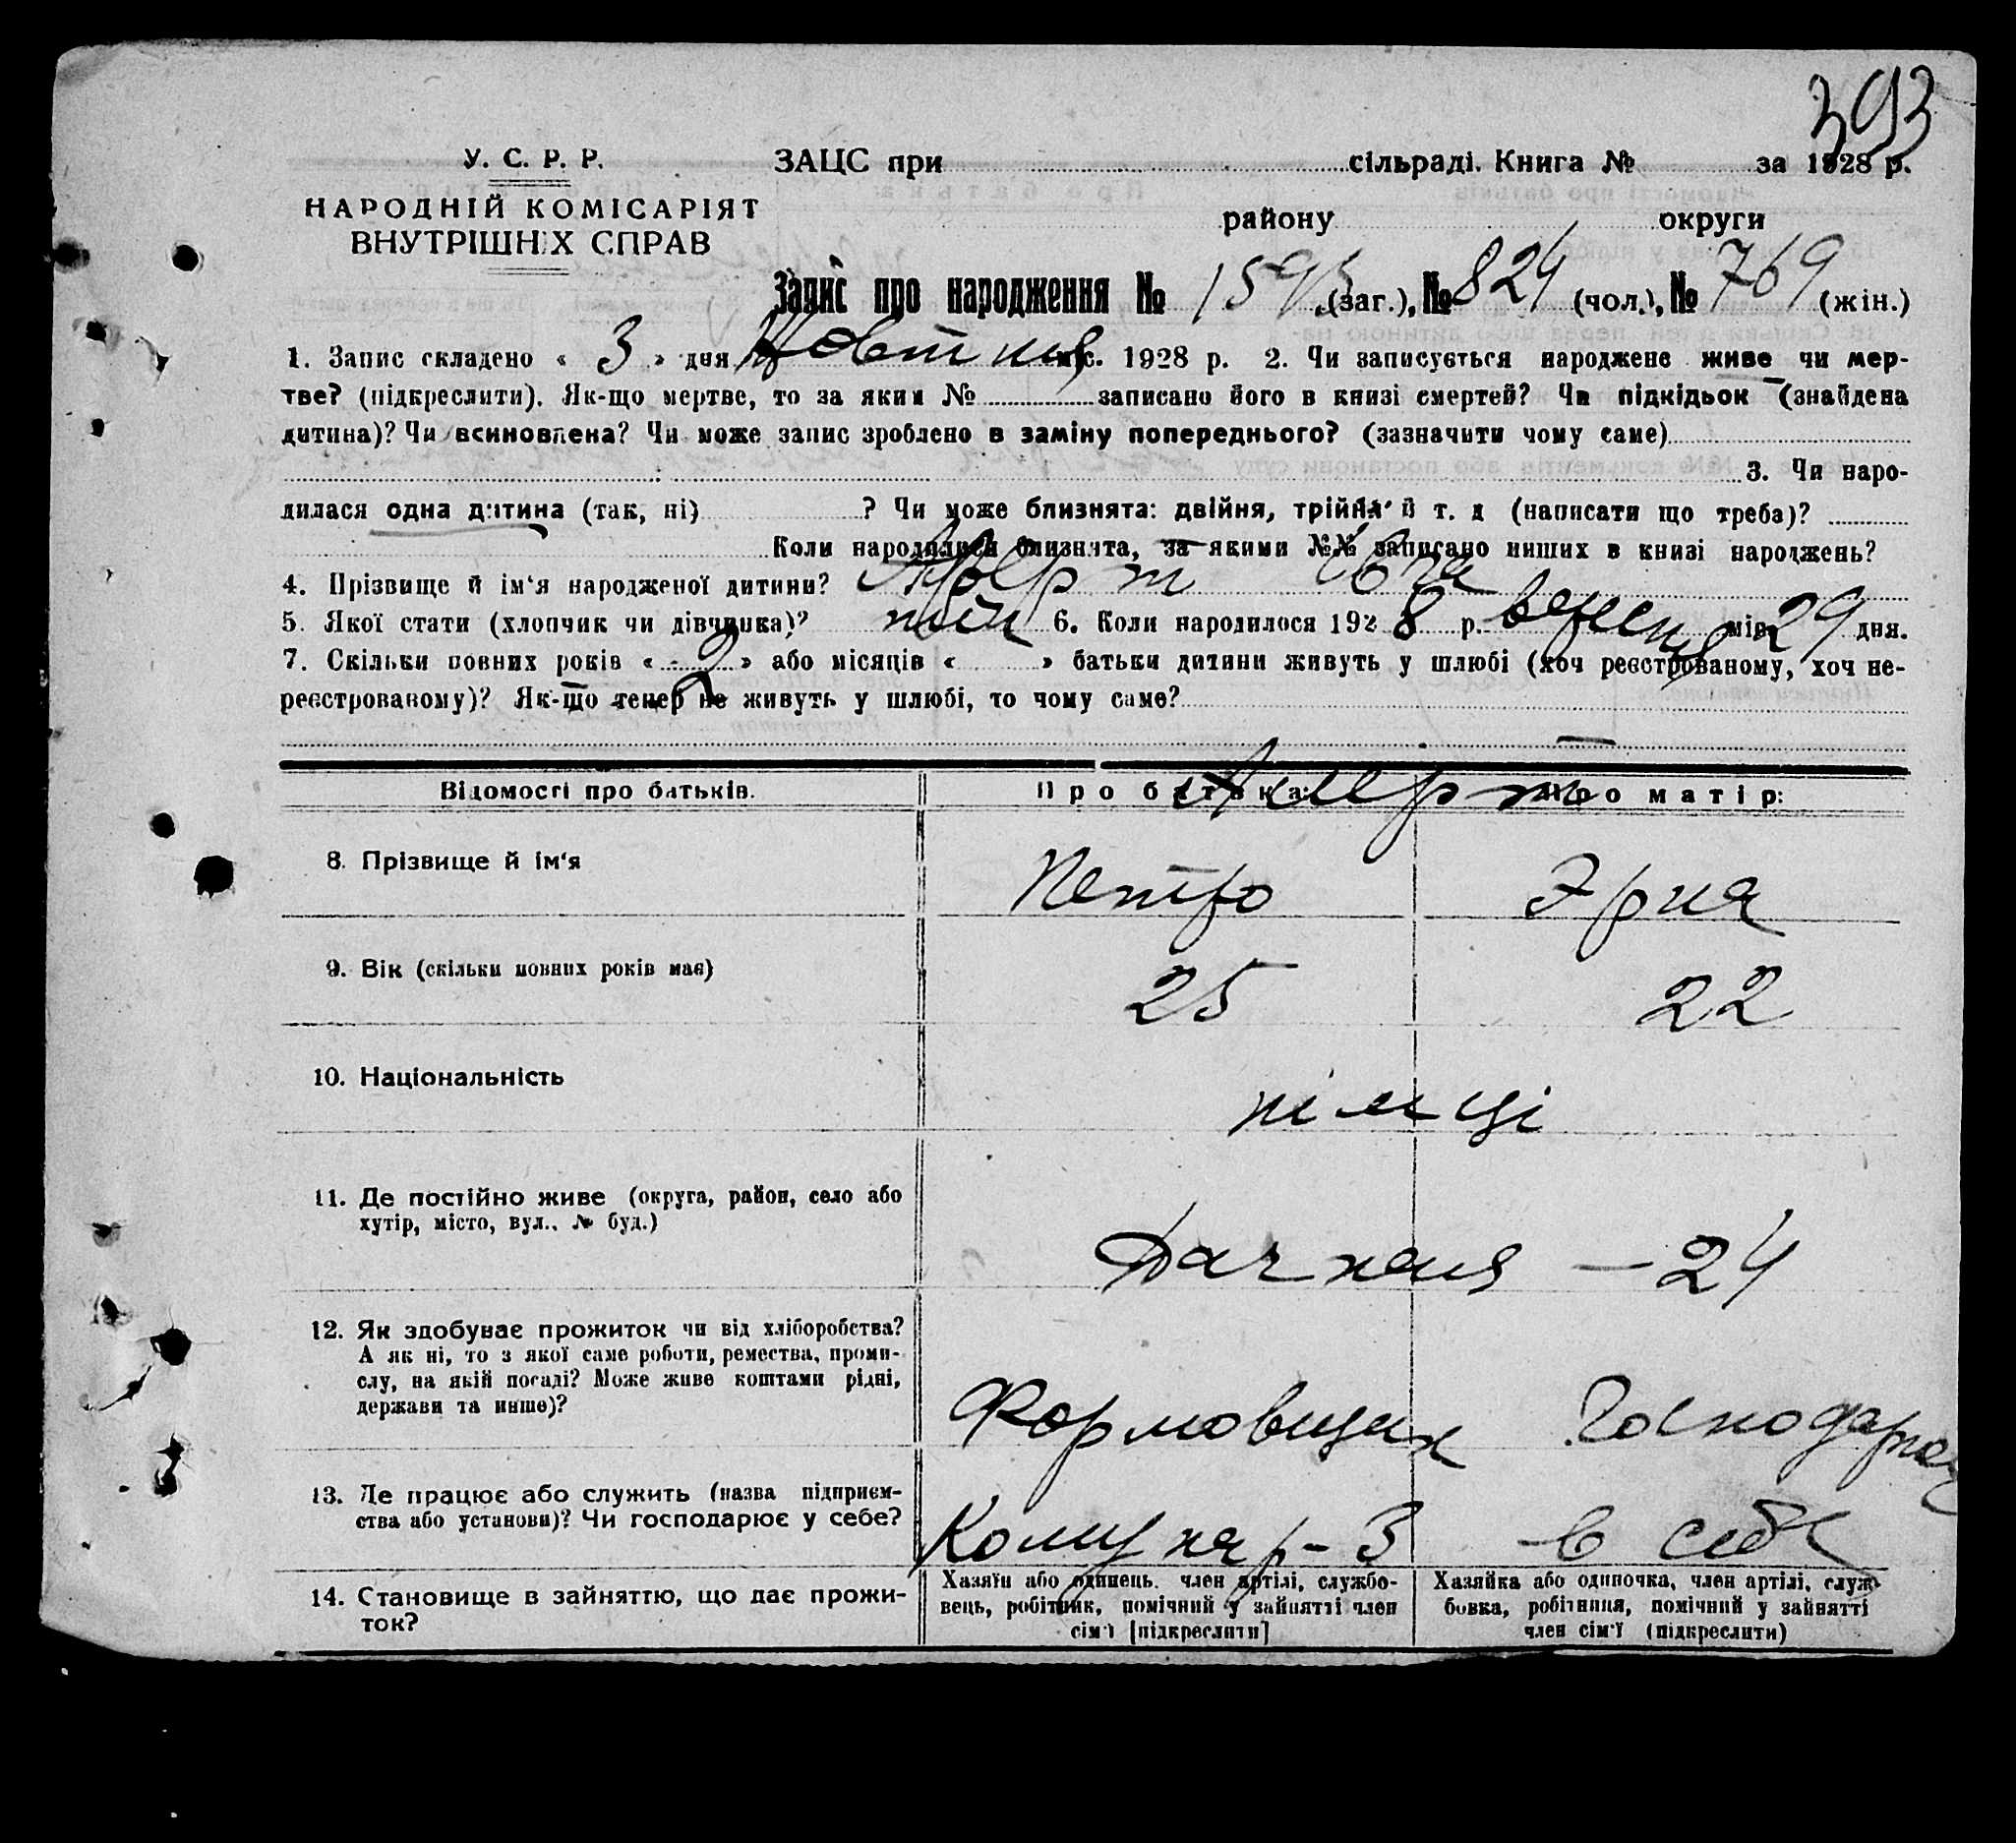 393
У. С. Р. Р.
НАРОДНІЙ КОМІСАРІЯТ
ВНУТРІШНІХ СПРАВ
ЗАЦС при сільраді. Книга № за 1928 р.
району округи
Запис про народження № 1593 (заг.), № 824 (чол.), № 769 (жін.)
1. Запис складено « 3 » дня Жовтня міс. 1928 р. 2. Чи записується народжене живе чи мер-
тве? (підкреслити). Як-що мертве, то за яким № записано його в книзі смертей? Чи підкідьок (знайдена
дитина)? Чи всиновлена? Чи може запис зроблено в заміну попереднього? (зазначити чому саме)
3. Чи наро-
дилася одна дитина (так, ні) ? Чи може близнята: двійня, трійня й т. д (написати що треба)?
Коли народилися близнята, за якими №№ записано инших в книзі народжень?
4. Прізвище й ім‘я народженої дитини?
5. Якої стати (хлопчик чи дівчинка)? 6. Коли народилося 192 8 р. вересня міс 29 дня.
7. Скільки повних років « 2 » або місяців « » батьки дитини живуть у шлюбі (хоч реєстрованому, хоч не-
реєстрованому)? Як-що тепер не живуть у шлюбі, то чому саме?
Відомості про батьків. Про батька: Про матір:
8. Прізвище й ім‘я Петро Эрна
9. Вік (скільки повних років має) 25 22
10. Національність німці
11. Де постійно живе (округа, район, село або
хутір, місто, вул., № буд.) Дачная — 24
12. Як здобуває прожиток чи від хліборобства?
А як ні, то з якої саме роботи, ремества, проми-
слу, на якій посаді? Може живе коштами рідні,
держави та инше)? Формовщик Господарка
13. Де працює або служить (назва підприєм-
ства або установи)? Чи господарює у себе? Комунар-З в себе
14. Становище в зайняттю, що дає прожи-
ток?
Хазяїн або одинець, член артілі, службо-
вець, робітник, помічний у зайнятті член
сім‘ї [підкреслити]
Хазяйка або одиночка, член артілі, служ-
бовка, робітниця, помічний у зайнятті
член сім‘ї (підкреслити)